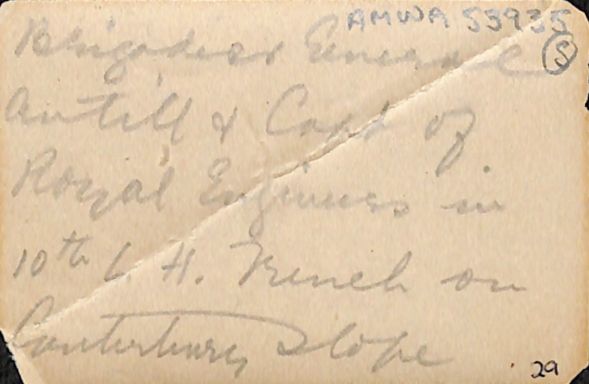 AMWA 53935
Brigadier General (S)
Antill & Capt of
Royal Engineers in
10th L. H. Trench on
Canterbury Slope
29